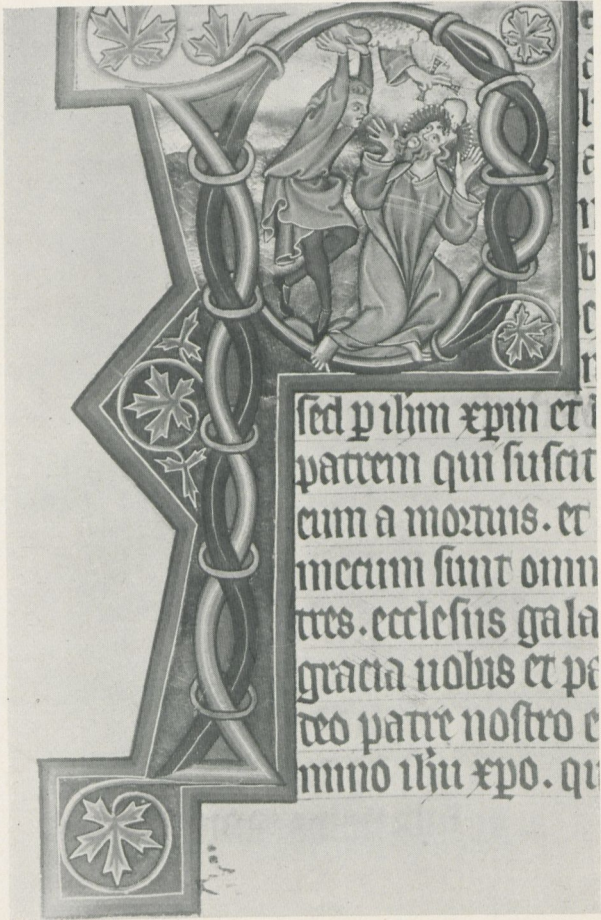 sed p ihm xpm et
patrem qui suscit
eum a mortuis. et
mecum sunt omn
tres. ecclesiis gala
gracia uobis et pa
deo patre nostro e
mino ihu xpo. qu